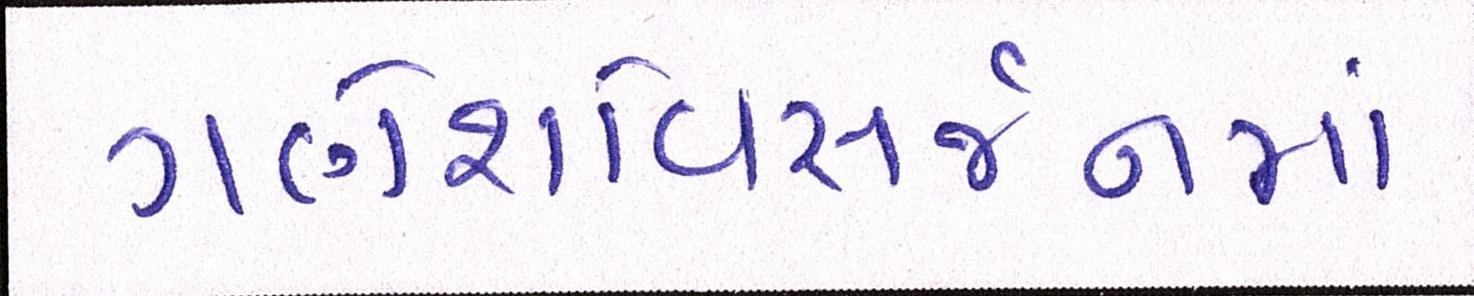 ગણેશવિસર્જનમાં